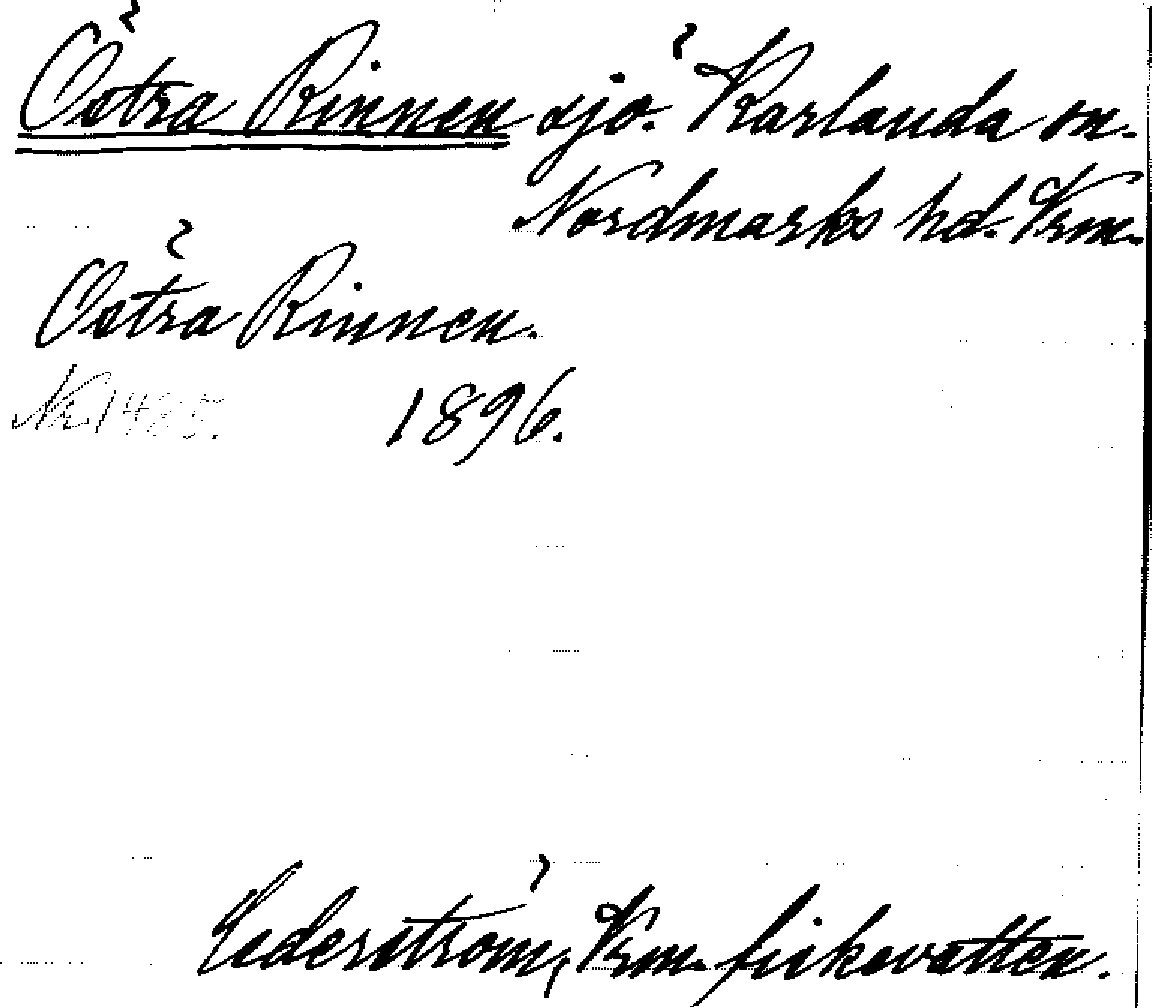 Östra Rinnen sjö. Karlanda sn.
Nordmarks hd. Vrm.
Östra Rinnen.
Nr 1485. 1896.
Cederström, Vrm. fiskevatten.